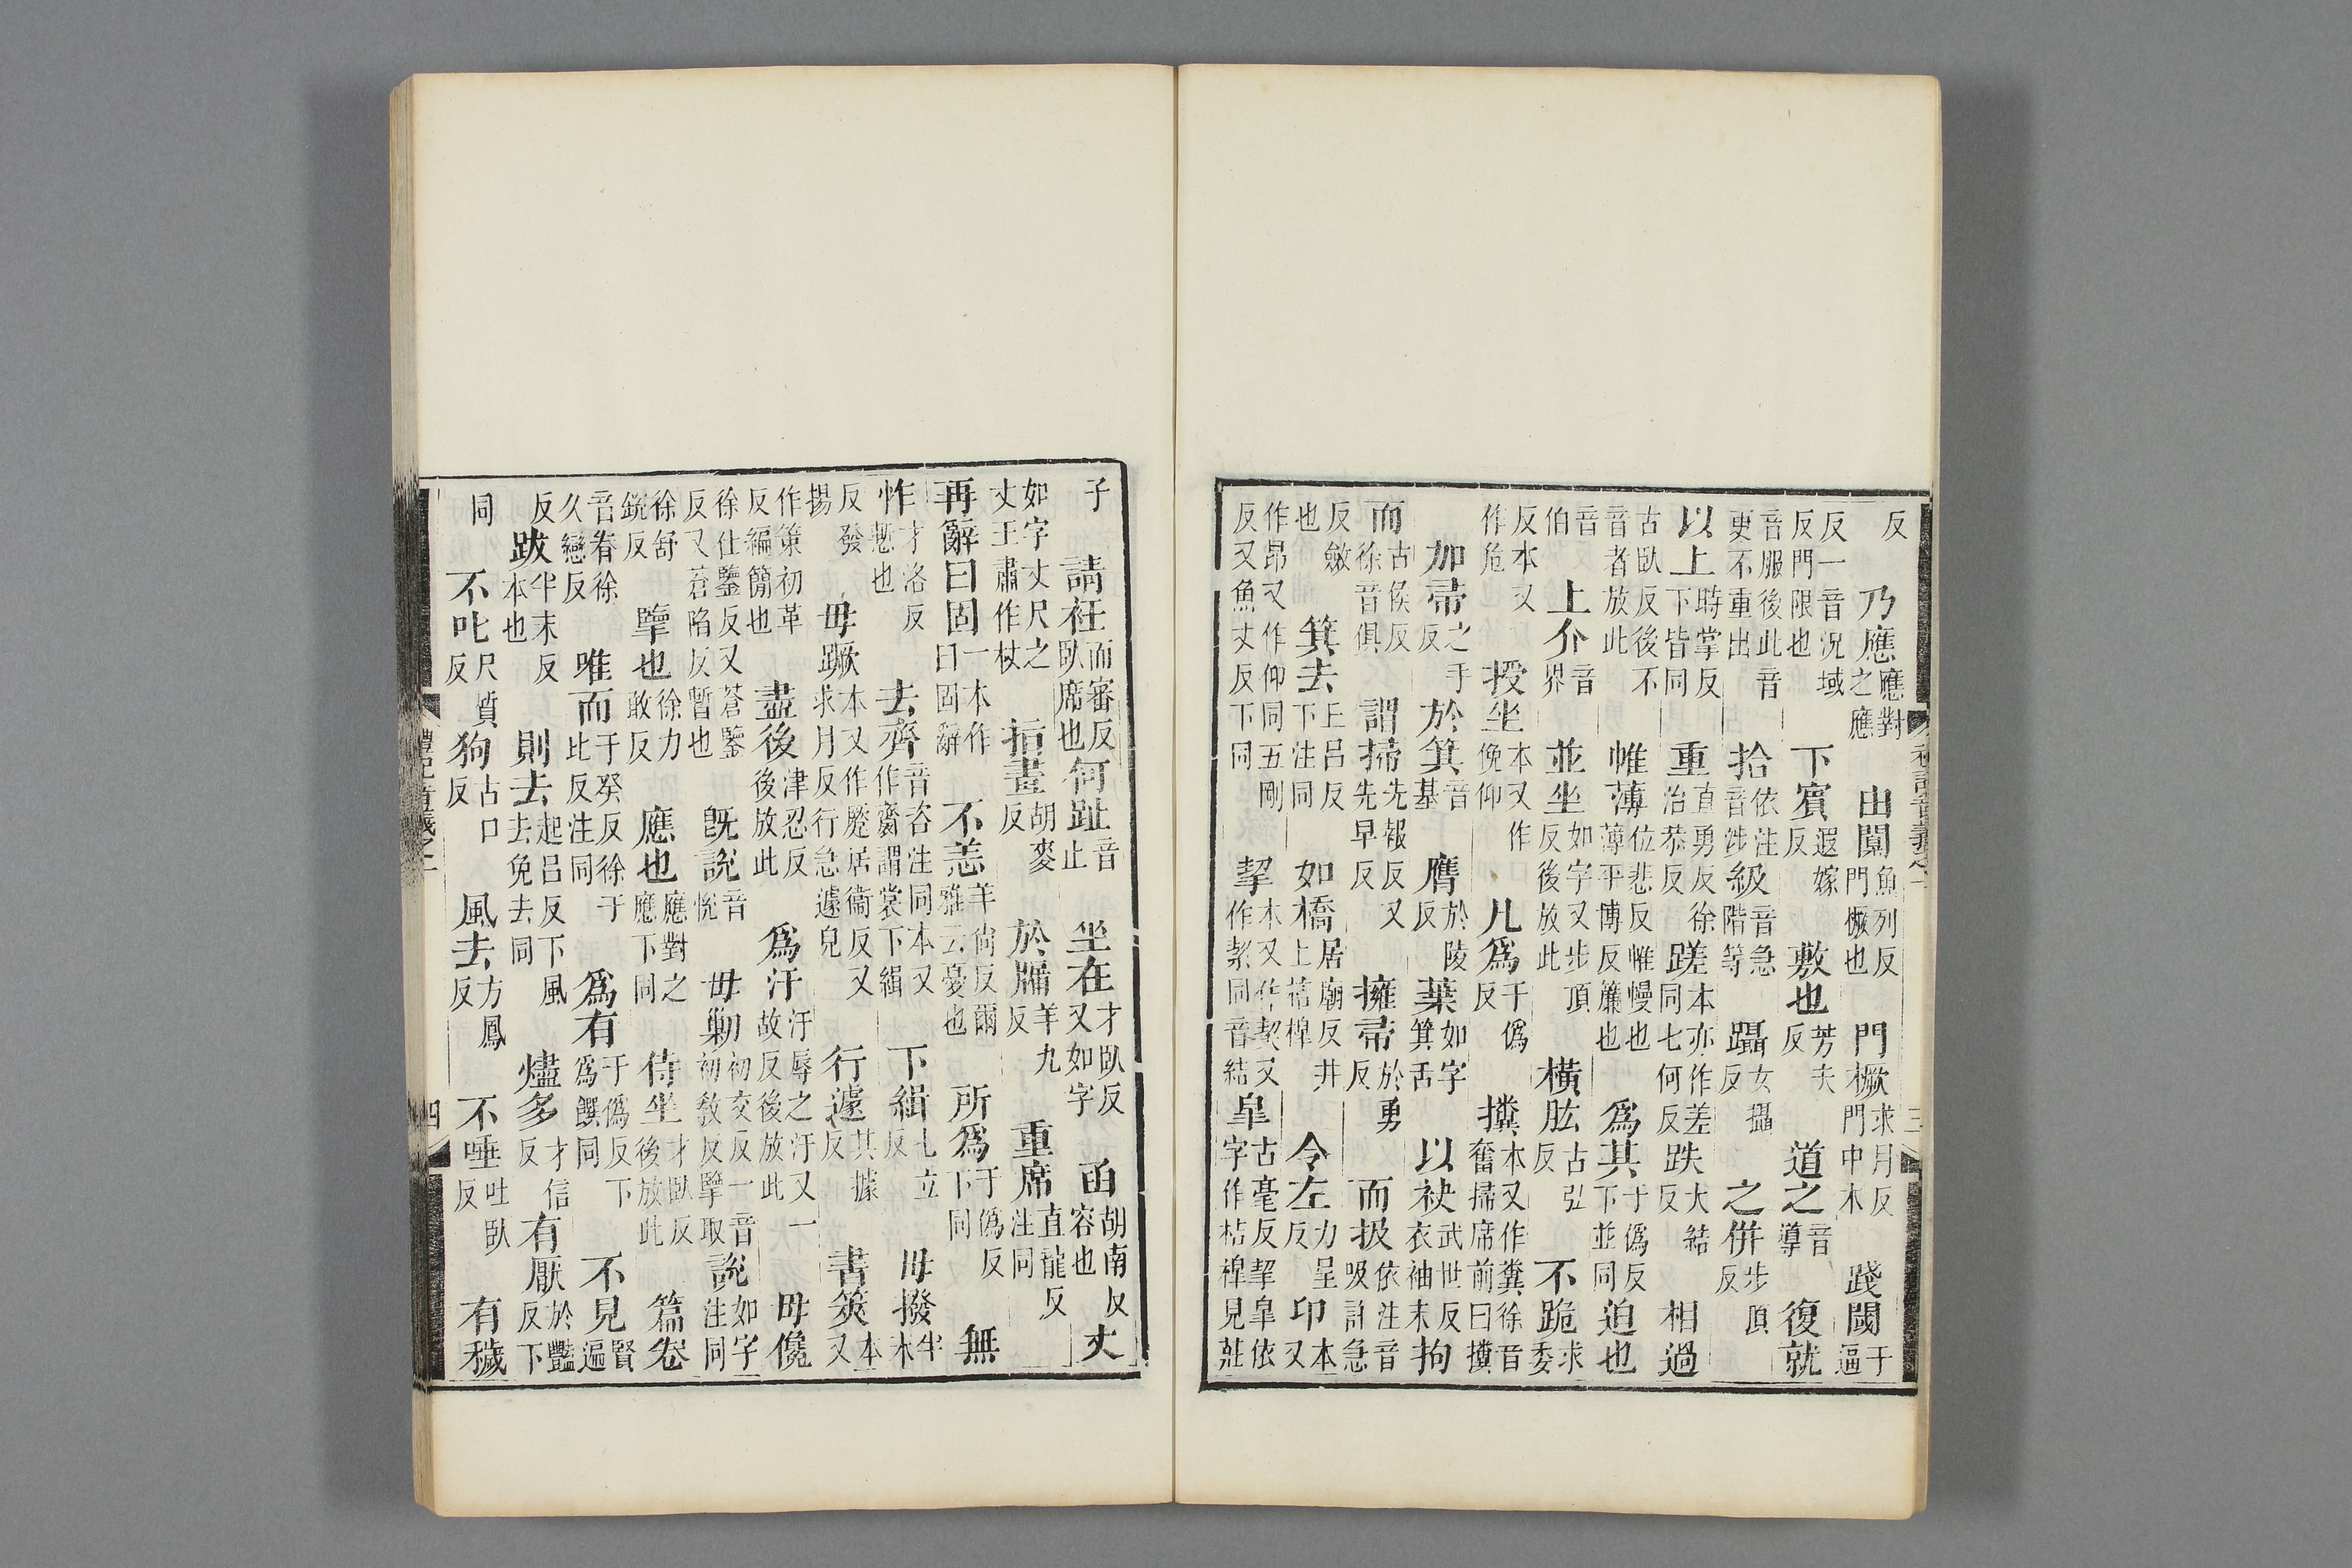 反 乃應應對之應 由闑魚列反門橛也 門橛求月反門中木 踐閾于逼
反一音況域反門限也 下賓遐嫁反 敷也芳夫反 道之音導 復就
音服後此音更不重出 拾依注音涉 級音急階等 躡女攝反 之併步頂反
以上時掌反下皆同 重直勇反徐治恭反 蹉本亦作差同七何反 跌大結反 相過
古臥反後不音者放此 帷薄位悲反帷幔也薄平博反簾也 爲其于僞反下並同 迫也
音伯 上介音界 並坐如字又步頂反後放此 橫肱古弘反 不跪求委
反本又作危 授坐本又作俛仰 几爲于僞反 攩本又作糞徐音奮掃席前曰攩
加帚之手反 於箕音基 膺於陵反 葉如字箕舌 以袂武世反衣袖末 拘
而古侯反徐音俱 謂掃先報反又先早反 擁帚於勇反 而扱依注音吸許急
反斂也 箕去上呂反下注同 如橋居廟反井上桔槹 令左力呈反 卬本又
作昂又作仰同五剛反又魚丈反下同 挈本又作契又作絜同音結 皐古毫反挈皐依字作桔槹見莊
禮記音義之一 三
子 請衽而審反臥席也 何趾音止 坐在才臥反又如字 函胡南反容也 丈
如字丈尺之丈王肅作杖 指畫胡麥反 於牖羊九反 重席直龍反注同
再辭曰固一本作曰固辭 不恙羊尙反爾雅云憂也 所爲于僞反下同 無
怍才洛反慙也 去齊音咨注同本又作齋謂裳下緝 下緝七立反 毋撥半末
反發揚 毋蹶本又作蹷居衞反又求月反行急遽皃 行遽其據反 書筴本又
作策初革反編簡也 盡後津忍反後放此 爲汙汙辱之汙又一故反後放此 毋儳
徐仕鑒反又蒼鑒反又蒼陷反暫也 旣說音悅 毋勦初交反一音初敎反擥取 說如字注同
徐舒銳反 擥也徐力敢反 應也應對之應下同 侍坐才臥反後放此 篇卷
音眷徐久戀反 唯而于癸反徐于此反注同 爲有于僞反下爲饌同 不見賢遍
反 跋半末反本也 則去起呂反下風去免去同 燼多才信反 有厭於豔反下
同 不叱尺質反 狗古口反 風去方鳳反 不唾吐臥反 有穢
禮記音義之一 四